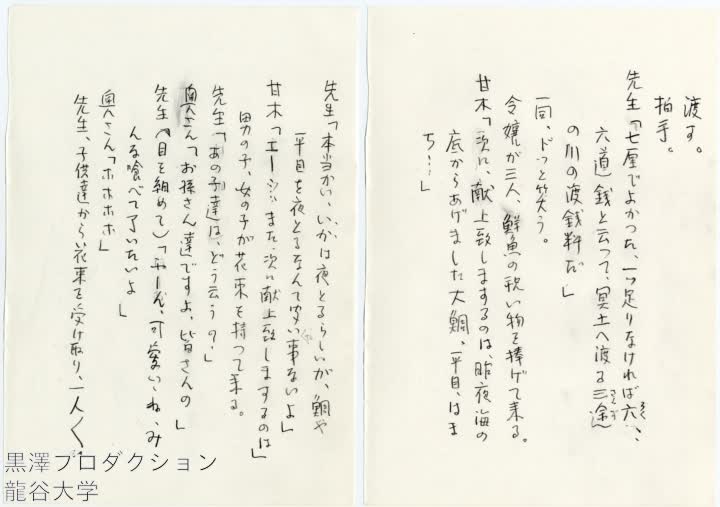 渡す。
拍手。
先生「七厘でよかった、一ツ足りなければ六、、
六道銭と云って、冥土へ渡る三途
の川の渡銭料だ」
一同、ドッと笑う。
令嬢が三人、鮮魚の祝い物を捧げて来る。
甘木「次に、献上致しまするのは、昨夜海の
底からあげました大鯛、平目、はま
ち……」
先生「本当かい、いかは夜とるらしいが、鯛や
平目を夜とるなんて 事ないよ」
甘木「エーッ……また次に献上致しまするのは」
男の子、女の子が花束を持って来る。
先生「あの子達は、どう云うの？」
奥さん「お孫さん達ですよ、皆さんの」
先生（目を細めて）「ふーん、可愛いね、み
んな喰べて了いたいよ」
奥さん「ホホホホ」
先生、子供達から花束を受け取り、一人〳〵
黒澤プロダクション
龍谷大学